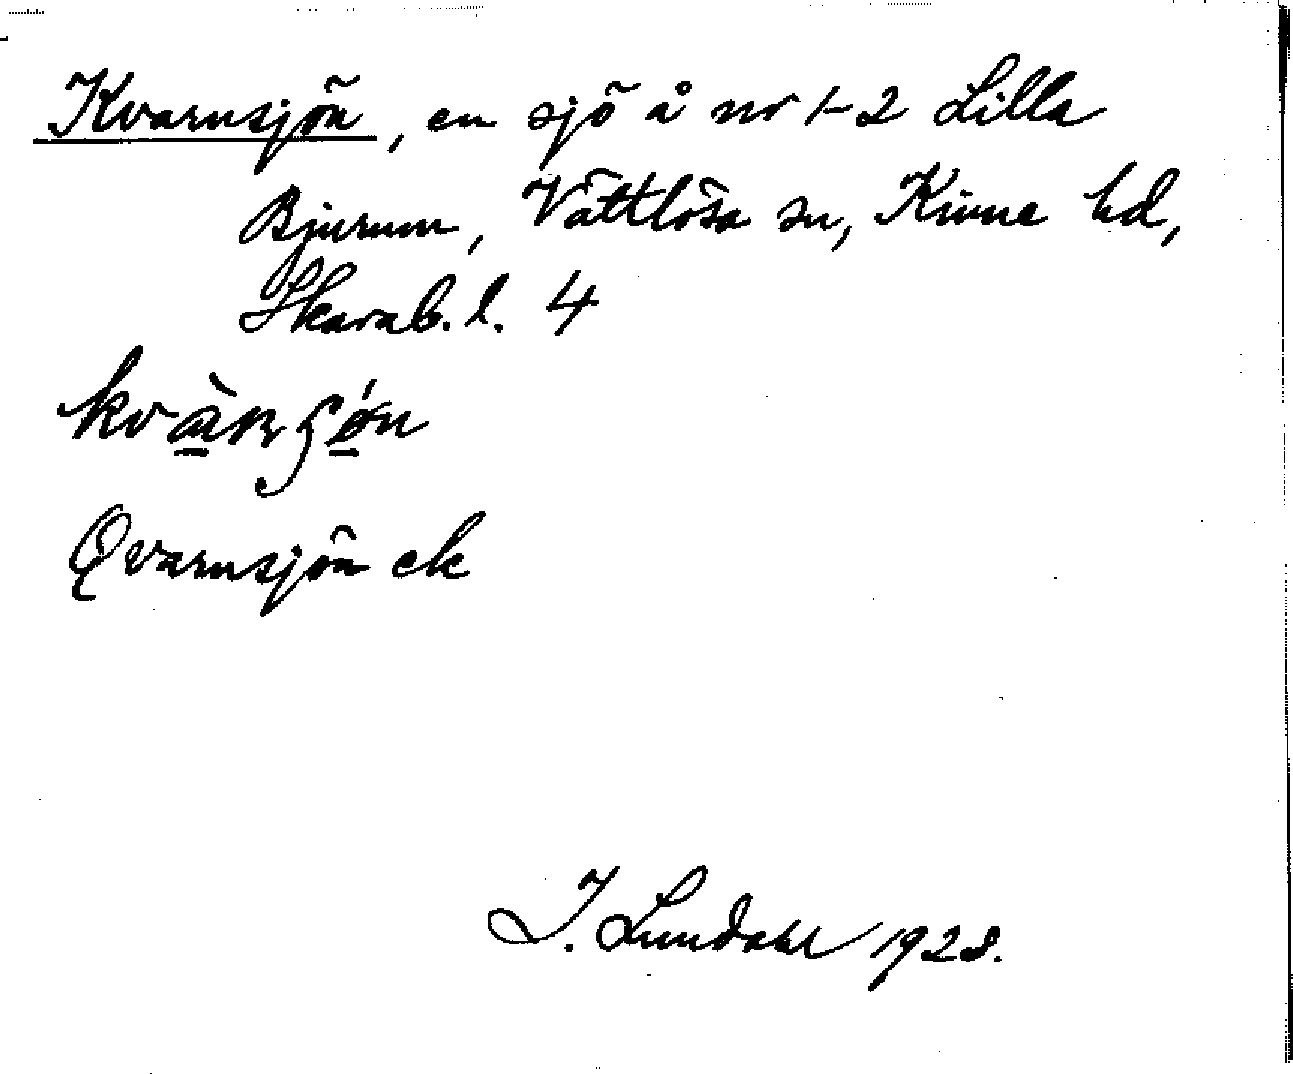 Kvarnsjön, en sjö å nr 1-2 Lilla
Bjurum, Vättlösa sn, Kinne hd,
Skarab. l. 4
Qvarnsjön ek
I. Lundahl 1928.